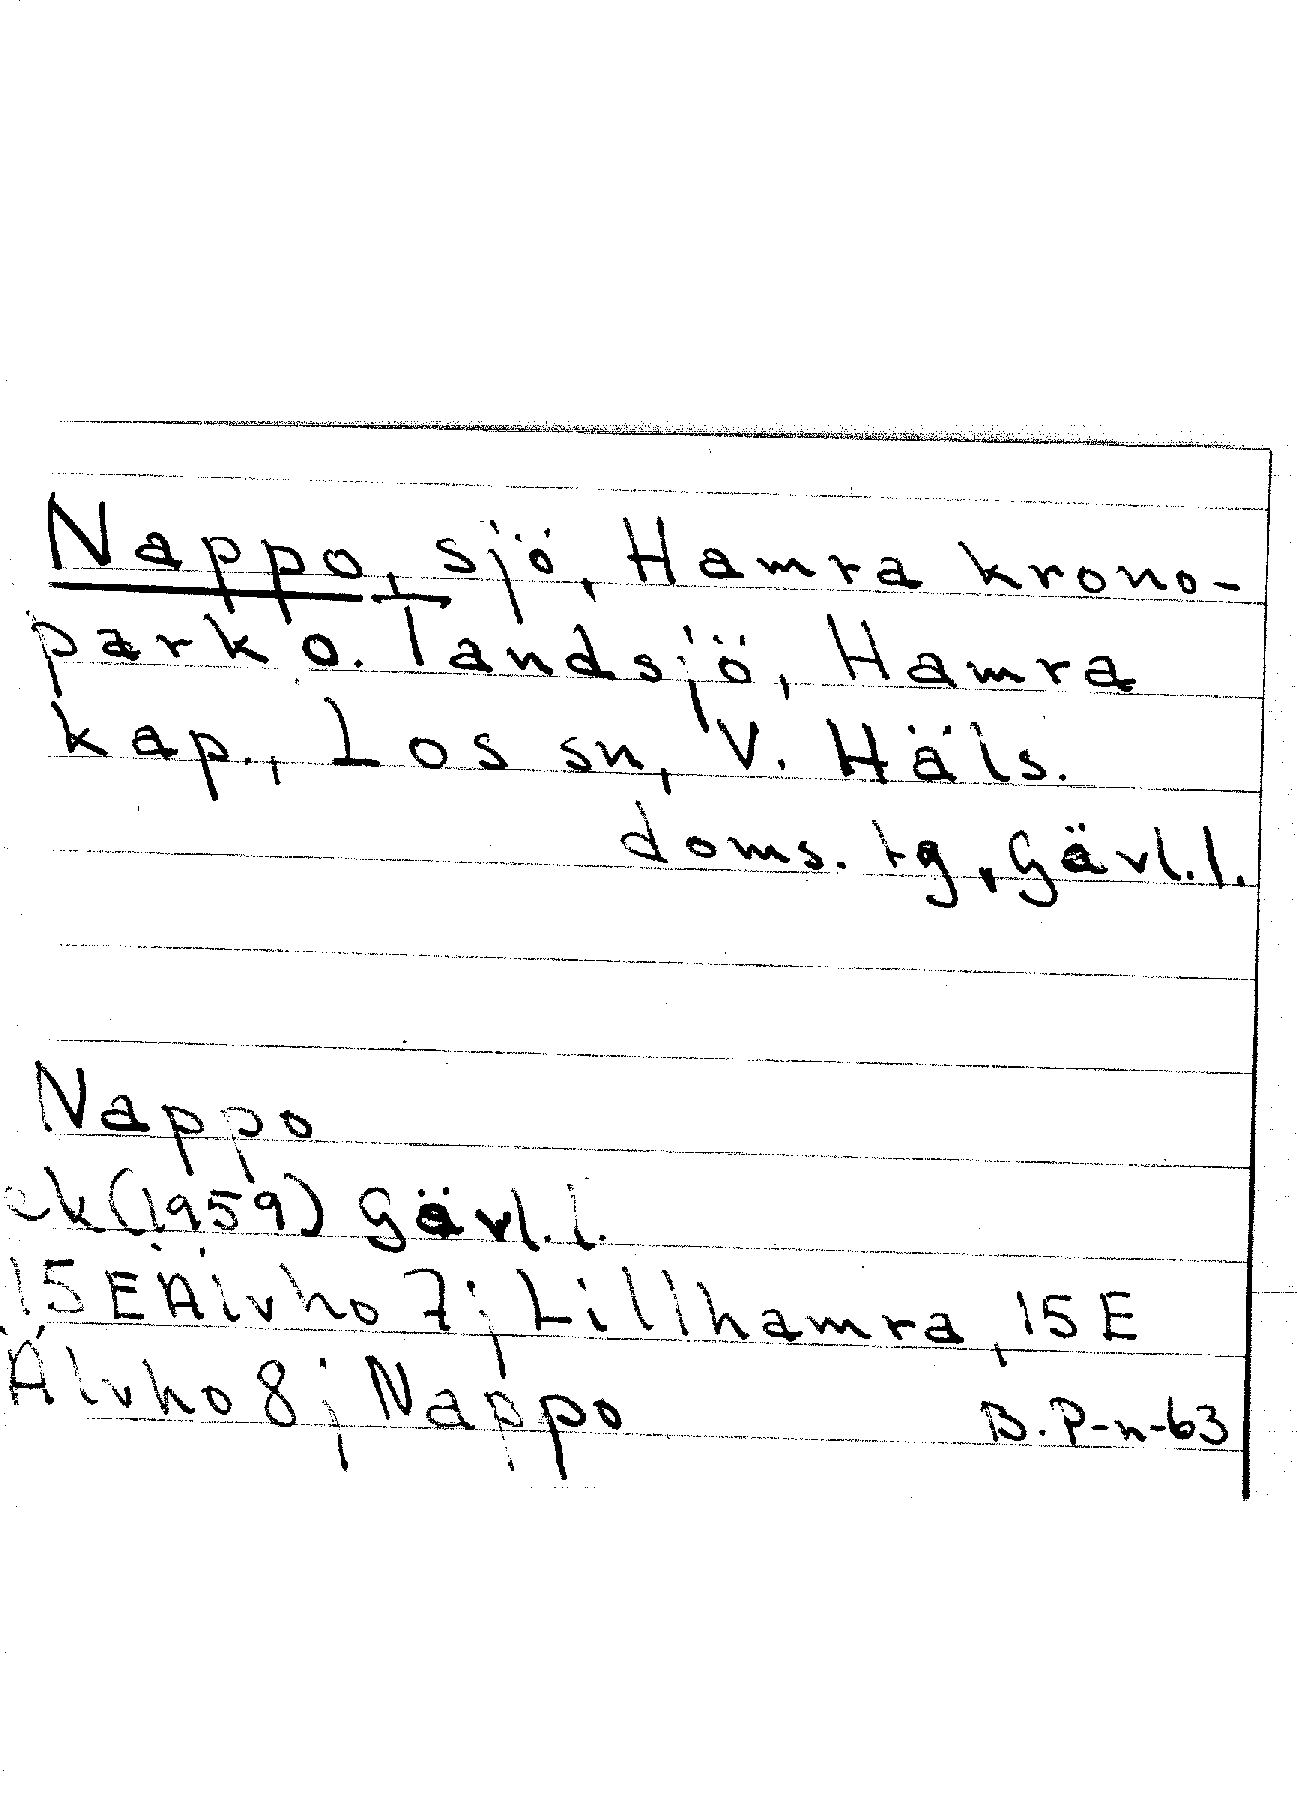 Nappo, sjö, Hamra krono-
park o. Tandsjö, Hamra
kap., Los sn, V. Häls.
doms. tg, Gävl. l.
Nappo
ek (1959) Gävl. l.
15 E Älvho 7; Lillhamra, 15 E
Älvho 8; Nappo
B. P-n-63